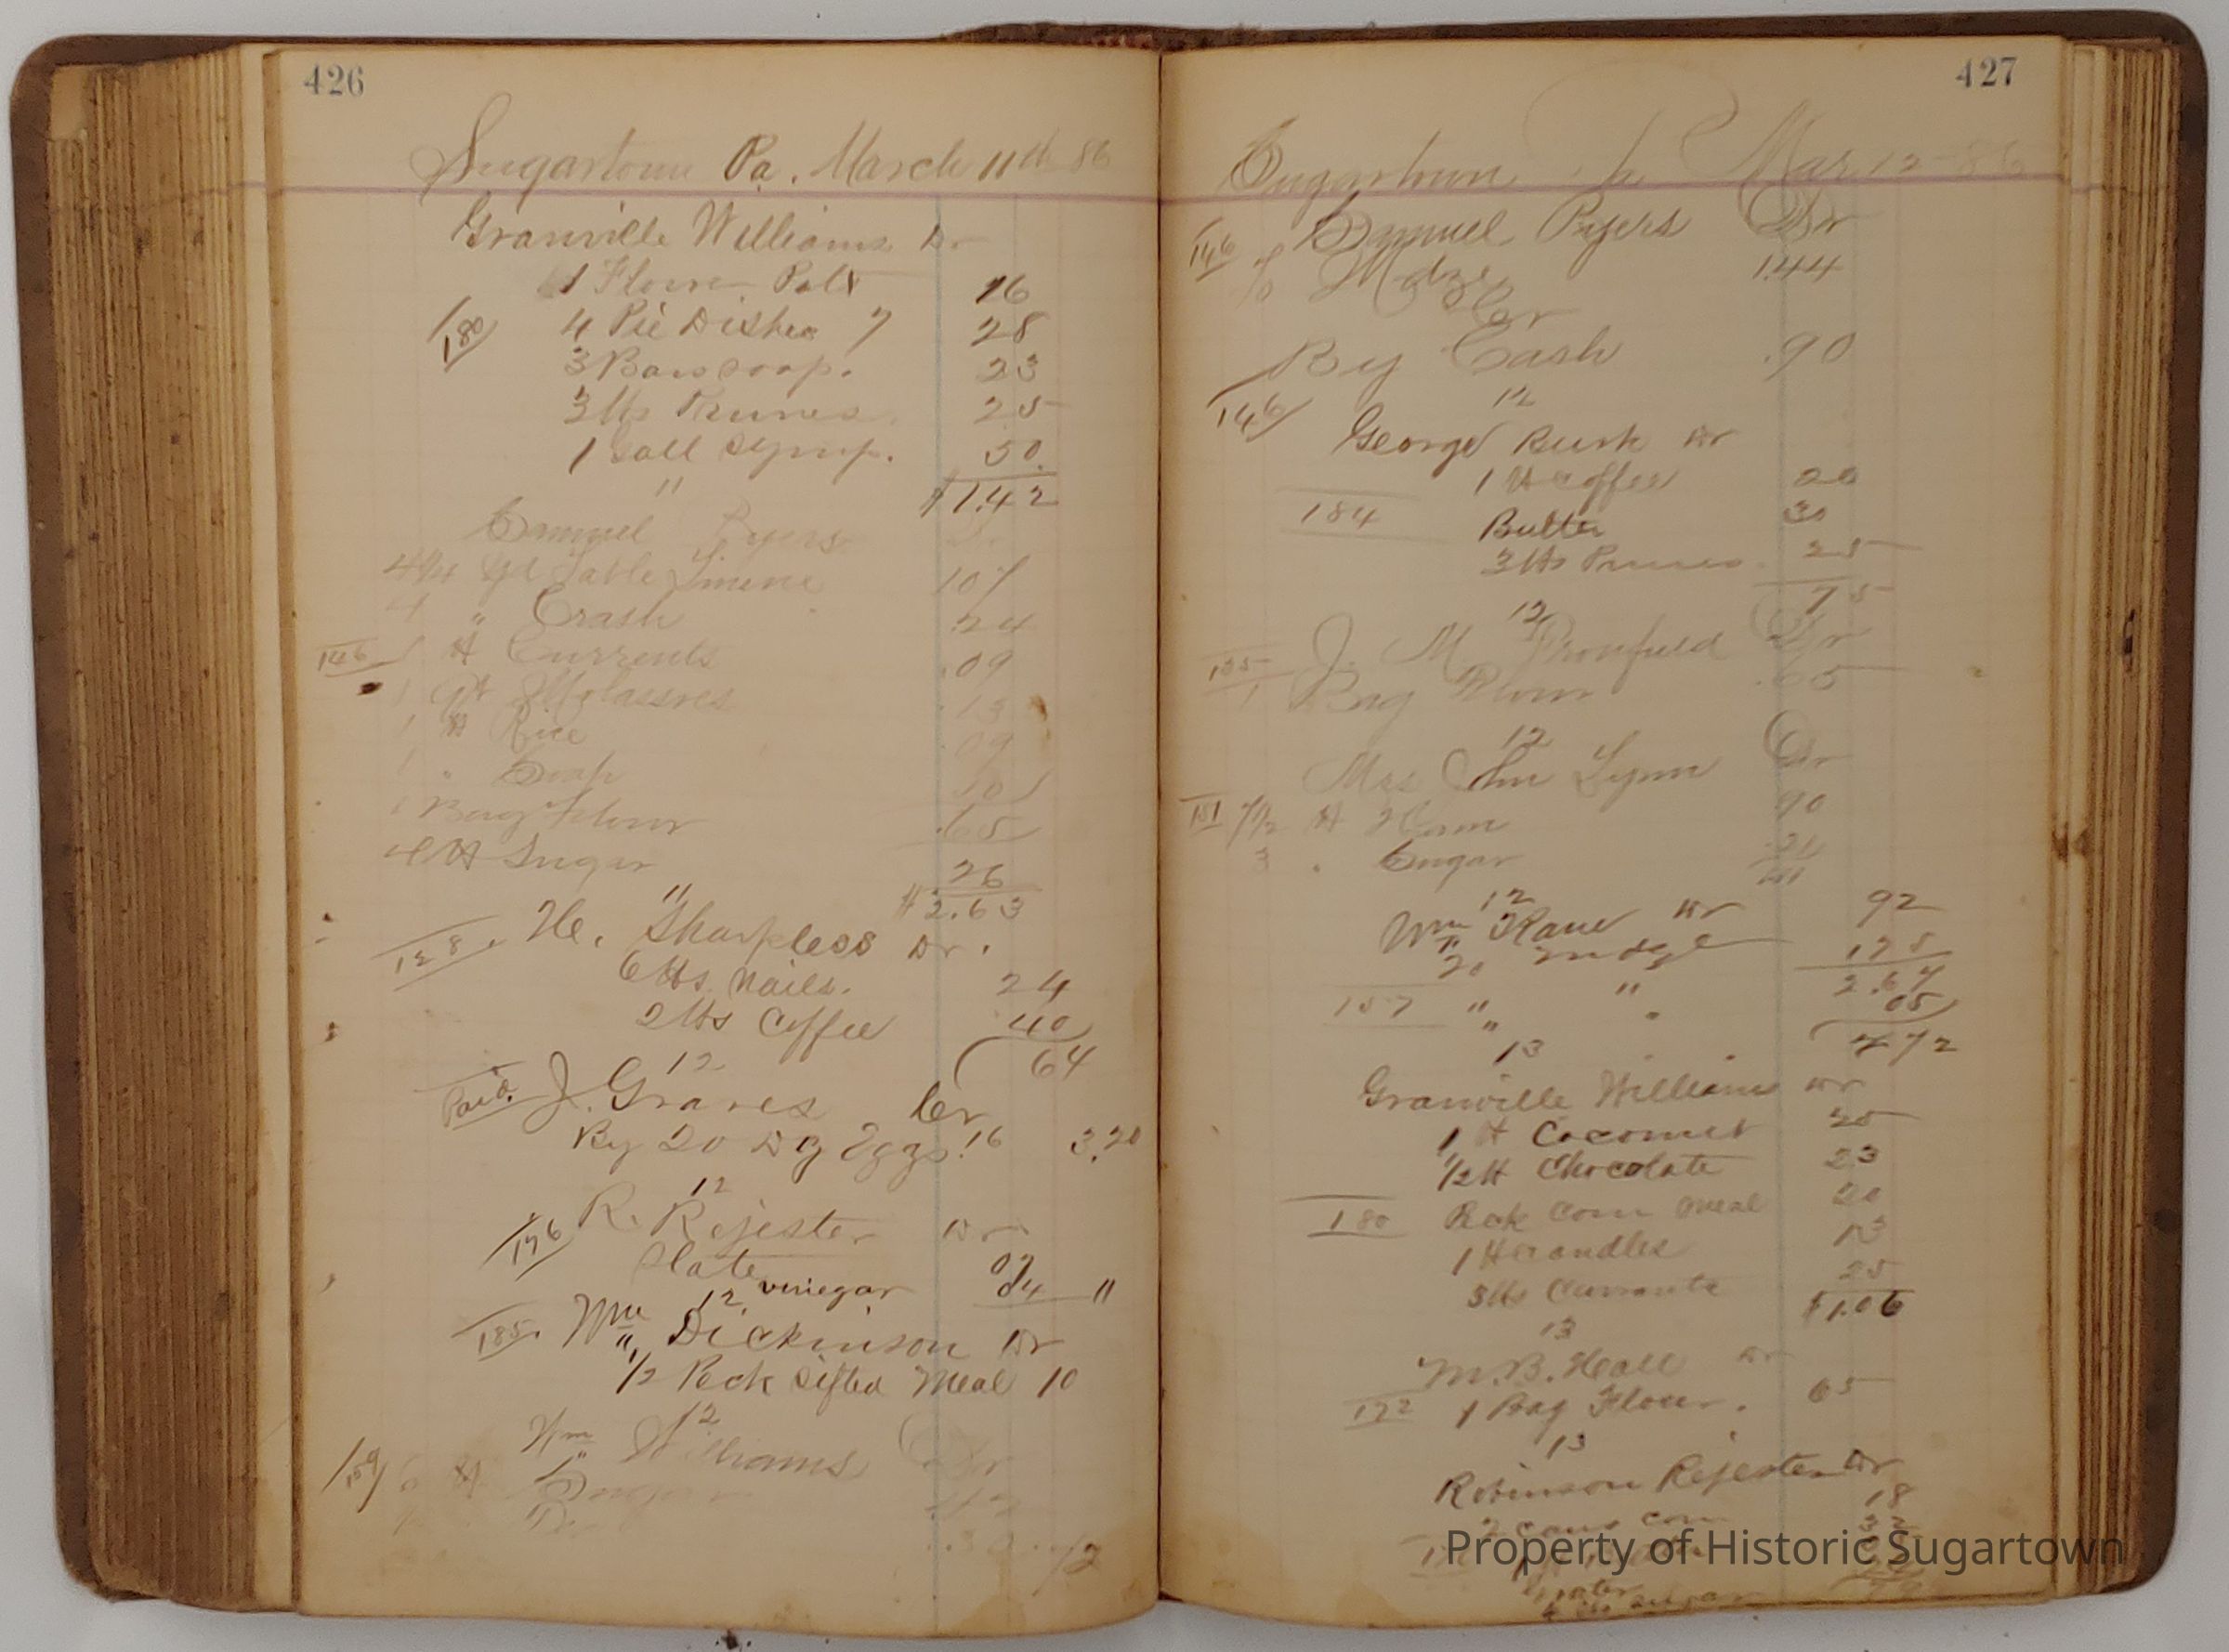 426
Sugartown Pa. March 11th 86
Granville Williams Dr
1 Flour 16
180 4 Pie Dishes 7 28
3 Bars soap. 23
3 lbs Prunes. 25
1 Gall Syrup. 50.
" $1.42
Samuel Pyers
4 1/4 Yd Table Linene 107
4 " Crash .24
146 1 lb Currents .09
1 qt Molasses .13
1 lb Rice 09
1 " Soap 10
1 Bag Flour .65
4 lb Sugar 26
" $2.63
128. H. Sharpless Dr.
6 lbs. Nails. 24
2 lbs Coffee 40
12 64
Paid. J. Graves Cr
By 20 Dz Eggs. 16 3.20
12
176 R. Rejester Dr
Plate 07
vinegar 04 "
12
185. Wm Dickinson Dr
1/2 Peck Sifted Meal 10
12
159 Wm Williams Dr
6 lb Sugar
427
Sugartown Mar 12 86
146 Samuel Pyers Dr
To Mdze 1.44
Cr
By Cash .90
146 12
George Rush Dr
1 lb Coffee 20
184 Butter 30
3 lbs Prunes. 25
75
12
J. M Dr
1 Bag Flour .65
12
Mrs Jhn Lynn Dr
151 7 1/2 lb Ham 90
3 " Sugar .21
12
Wm Kane Dr 92
To Mdze 175
157 " " 2.67
" " 05
13 472
Granville Williams Dr
1 lb Cocconut 25
1/2 lb Chocolate 23
180 Peck Corn Meal 20
1 lb Candles 13
3 lbs Currants 25
$1.06
13
M.B. Hall Dr
172 1 Bag Flour. 65
13
Robinson Rejester Dr
2 cans corn 18
Property of Historic Sugartown